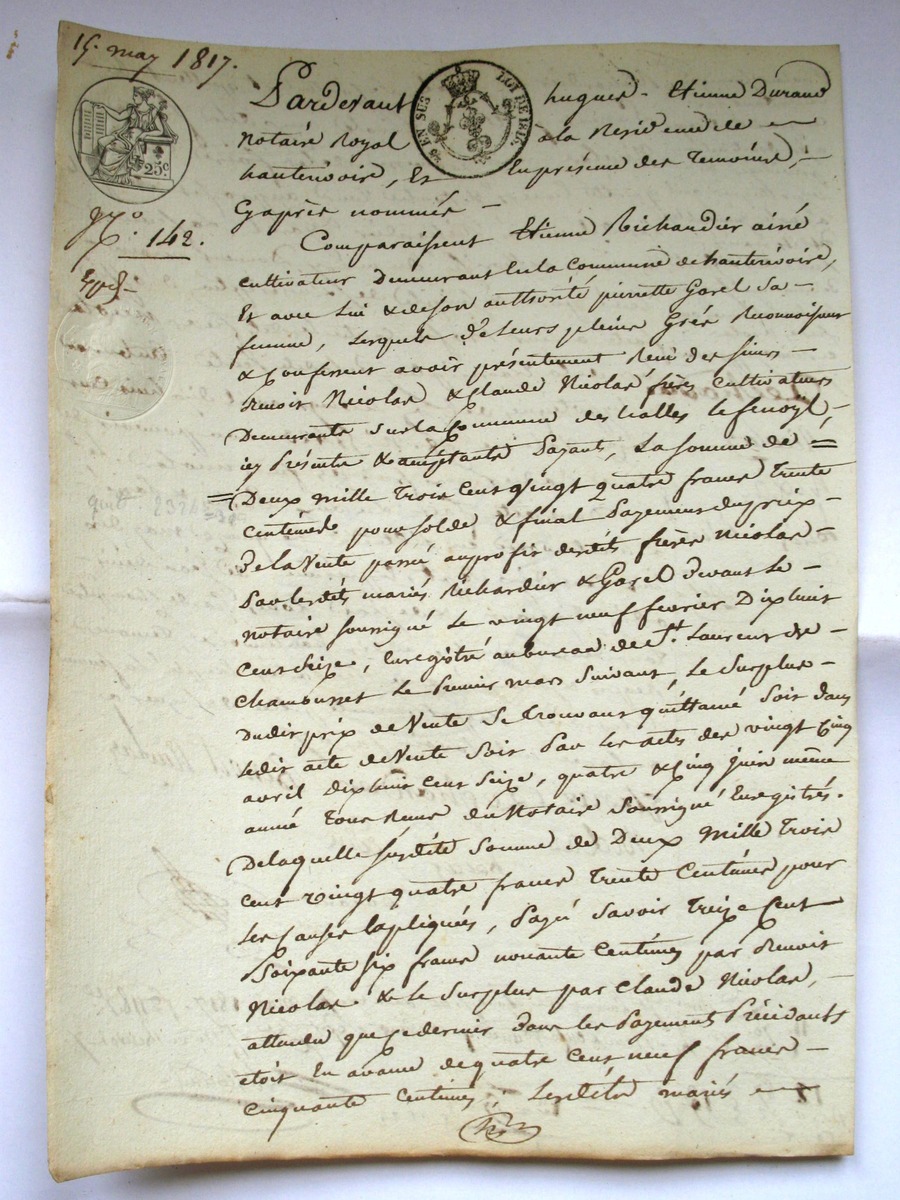 15. may 1817.
25c
EN SUS LOI DE 1816
N.o 142.
Expé.
Pardevant hugues - Etienne Durand
Notaire Royal a la Residence de
hauterivoire, Et En présence des temoins,
Cyaprès nommés -
Comparaissent Etienne Richardier ainé
cultivateur Demeurant En la Commune de hauterivoire,
Et avec lui & de son authorité pierrette Garel Sa
femme, lesquels De leurs pleins Grés Reconnoissent
& Confessent avoir présentement Recu des sieurs
Benoit Nicolas & Claude Nicolas frères cultivateurs
Demeurants sur la Commune des halles le fenoyl,
icy Présents & acceptants Payants, La somme de
Deux mille trois Cent Vingt quatre francs trente
centimes pour solde & final Payement du prix
De la Vente passée au profit desdits frères Nicolas
Par lesdits mariés Richardier & Garel Devant le
notaire soussigné le vingt neuf fevrier Dixhuit
Cent Seize, Enregistré au bureau de St. Laurent de
Chamousset le Premier mars Suivant, Le Surplus
Dudit prix de Vente Se trouvant quittancé Soit dans
ledit acte de Vente Soit Par les actes des vingt Cinq
avril Dixhuit Cent Seize, quatre & Cinq juin même
année tous Recus du Notaire Soussigné Enregistrés.
De laquelle susdite Somme de Deux Mille Trois
cent vingt quatre francs trente Centimes pour
les Causes Expliquées, Payé Savoir Treize Cent
Soixante six francs nonante Centimes par Benoit
Nicolas & le Surplus par Claude Nicolas,
attendu que ce dernier Dans les Payements Précédants
étoit En avance de quatre Cent neuf francs
Cinquante Centimes ; Lesdits mariés